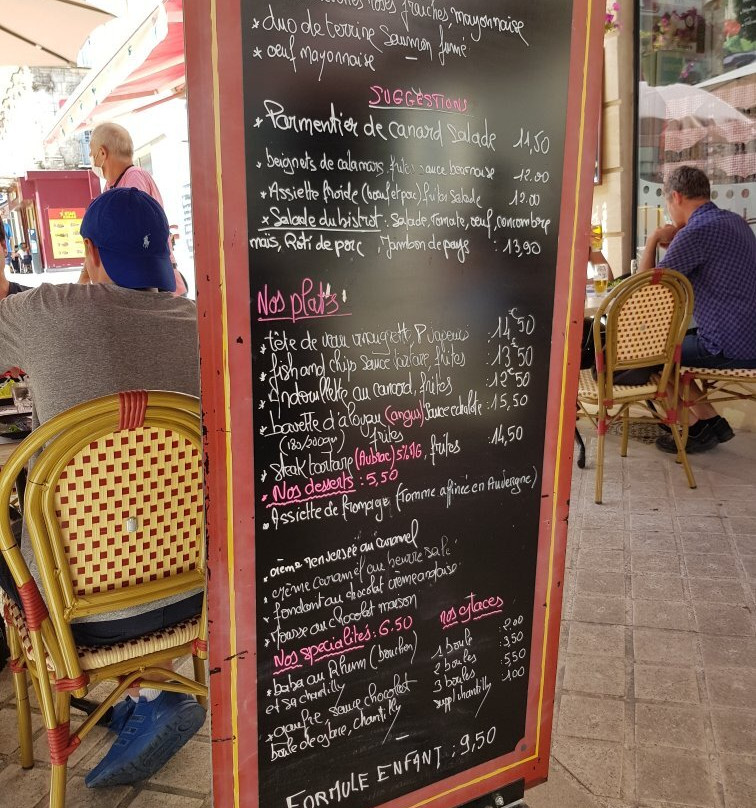 roses fraîches, mayonnaise
* duo de terrine Saumon fumé
* oeuf mayonnaise
SUGGESTIONS
* Parmentier de canard salade 11,50
* beignets de calamars, frites, sauce 12.00
* Assiette froide (boeuf et porc) frites Salade 12.00
* Salade du bistrot : Salade, Tomate, oeuf, concombre
maïs, Roti de porc, Jambon de pays : 13,90
Nos plats
* tête de veau vinaigrette, P vapeurs : 14€50
* fish and chips Sauce tartare, frites : 13€50
* Andouillette au cancod, frites : 12€50
* bavette d'aloyau (angus) Sauce echalote : 15,50
(180/200gr) frites
* steak tartare (Aubrac) 5% MG, frites : 14,50
Nos desserts : 5,50
* Assiette de fromage (Tomme affinée en Auvergne)
* crème renversée au caramel
* crème caramel au beurre salé
* fondant au chocolat crème anglaise
* Mousse au chocolat maison
Nos spécialités : 6.50
* baba au Rhum (bouchon)
et sa chantilly
* gaufre, sauce chocolat
boule de glace, chantilly
nos glaces
1 boule : 2,00
2 boules : 3,50
3 boules : 5,50
suppl chantilly : 1,00
FORMULE ENFANT : 9,50